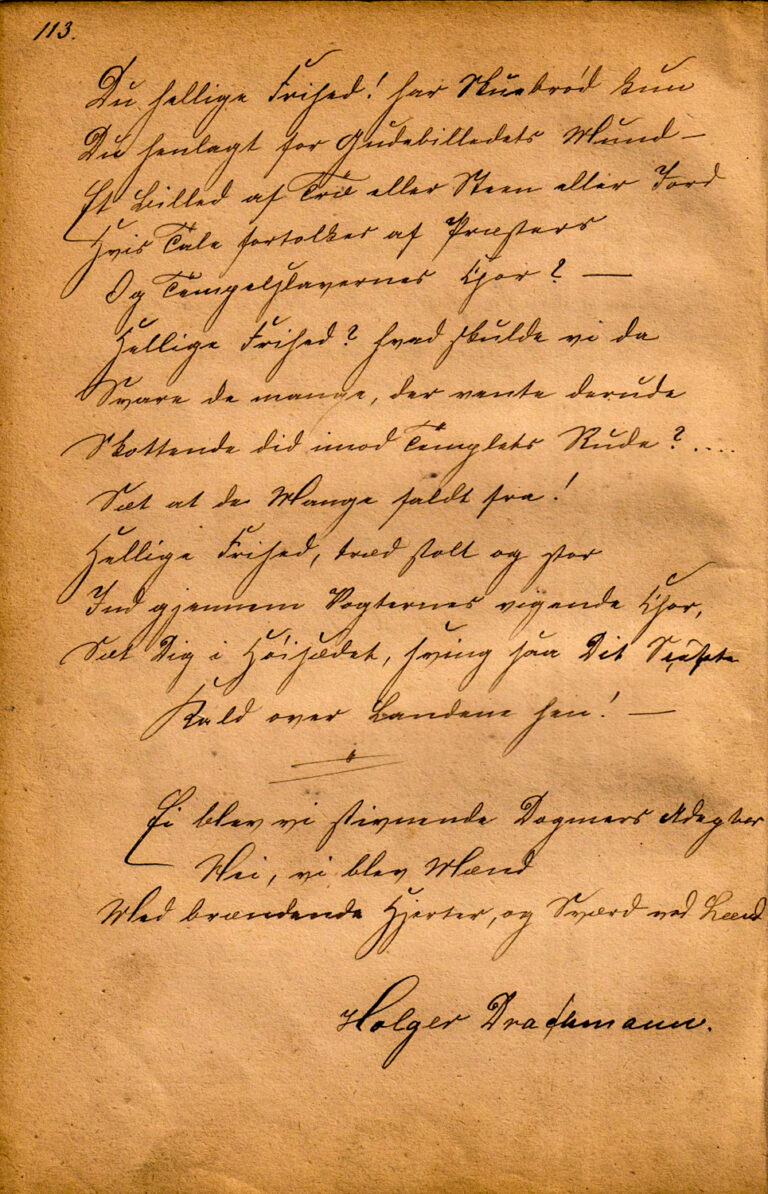 113.
Du hellige Frihed! har Skuebrød kun
Du henlagt for Gudebilledets Mund –
Et Billed af Træ eller Steen eller Jord
Hvis Tale fortolkes af Præsters
Og Tempelslavernes Chor? –
Hellige Frihed? hvad skulde vi da
Svare de mange, der vente derude
Skottende did imod Templets Rude? ....
Sæt at de Mange faldt fra!
Hellige Frihed, træd stolt og stor
Ind gjennem Vogternes vigende Chor,
Sæt Dig i Høisædet, sving saa Dit
Kald over Landene hen! –
Ei blev vi stivnende Dogmers Adepter
Nei, vi blev Mænd
Med brændende Hjerter, og Sværd ved Lænd
Holger Drachmann.